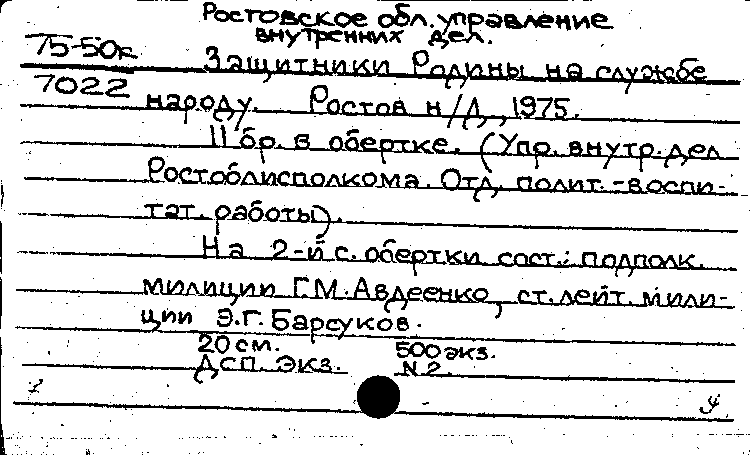 Ростовское обл. управление
внутренних дел.
75-50к
Защитники Родины на службе
7022
народу. Ростов н/Д, 1975.
11 бр. в обертке. (Упр. внутр. дел
Ростоблисполкома. Отд. полит.-воспи-
тат. работы).
На 2-й с. обертки сост.: подполк.
милиции Г.М. Авдеенко, ст. лейт. мили-
ции Э.Г. Барсуков.
20 см. 500 экз.
ДСП. Экз. N 2.